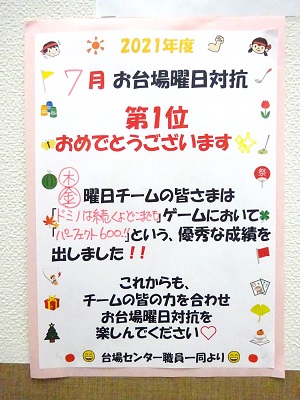 2021年度
7月 お台場曜日対抗
第1位
おめでとうございます
木
金 曜日チームの皆さまは
「ドミノは続くよどこまでも」ゲームにおいて
「パーフェクト600!!」という、優秀な成績を
出しました!!
これからも、
チームの皆の力を合わせ
お台場曜日対抗を
楽しんでください♡
台場センター職員一同より
祭